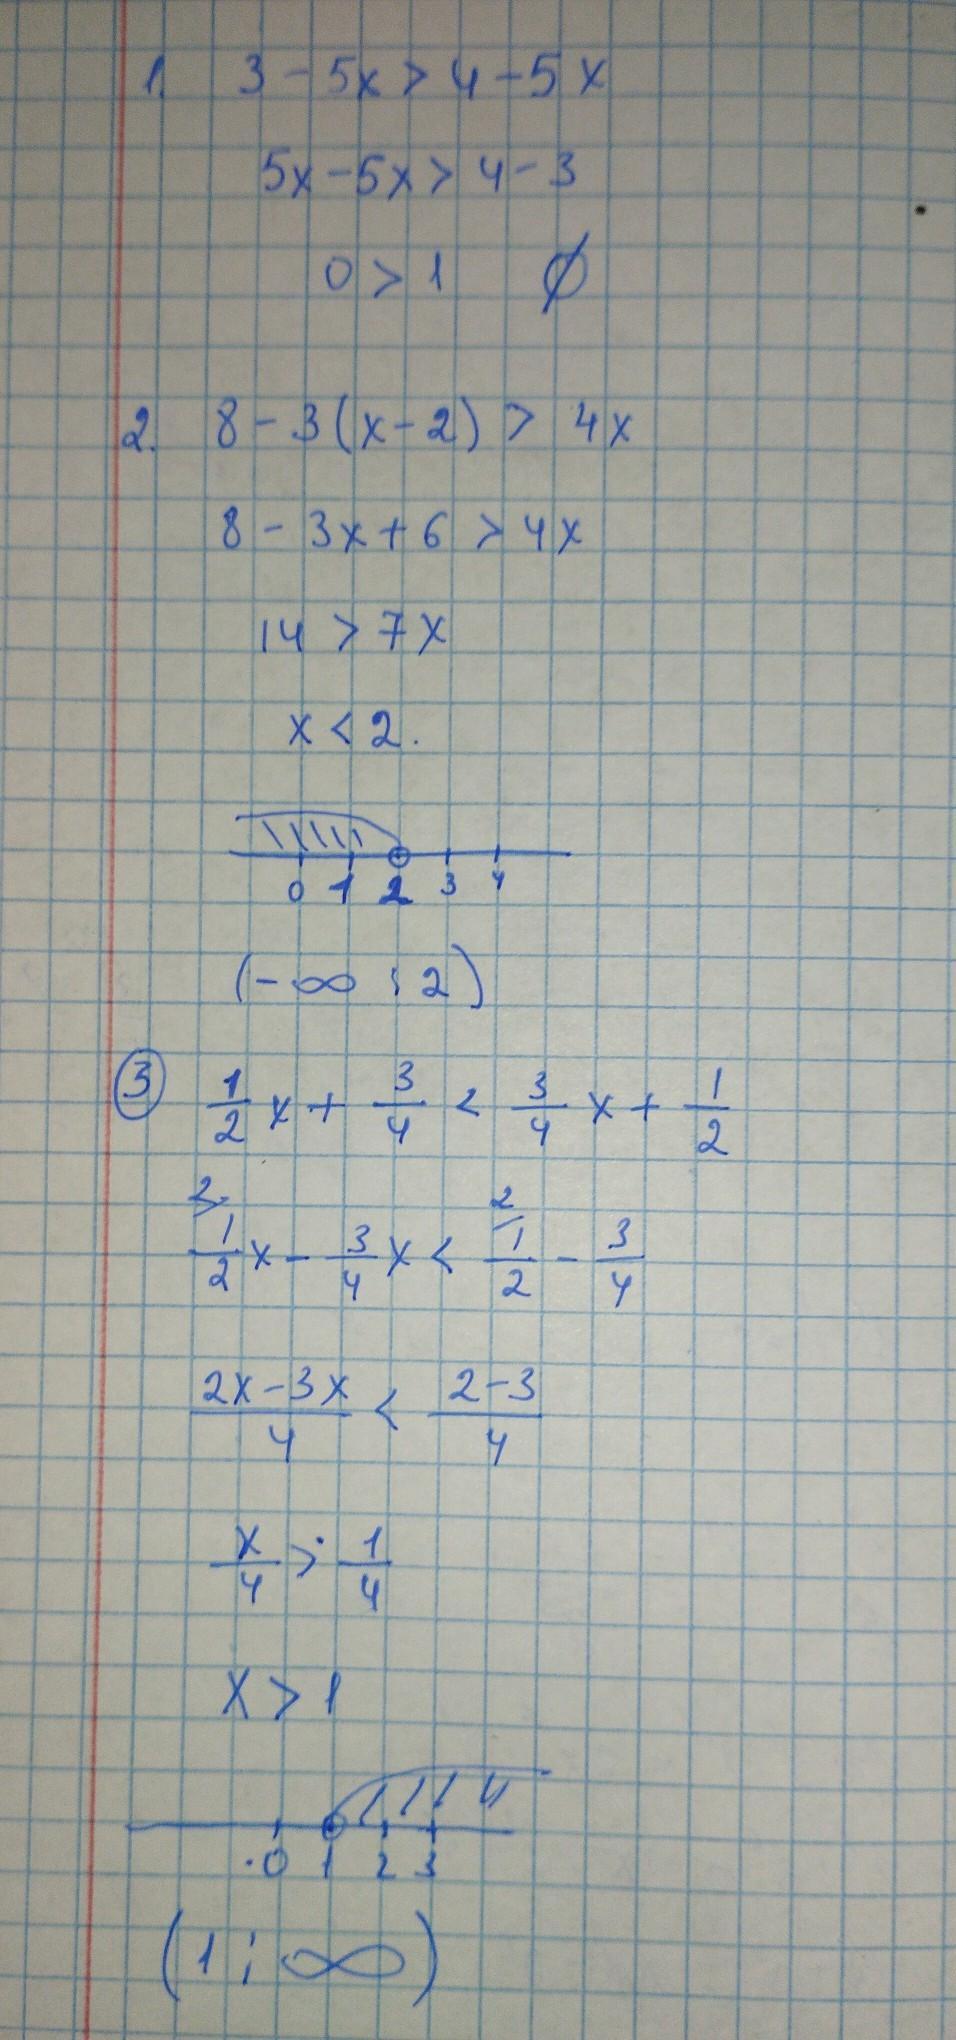 1. 3 - 5x > 4 - 5x
5x - 5x > 4 - 3
0 > 1 ∅
2. 8 - 3(x - 2) > 4x
8 - 3x + 6 > 4x
14 > 7x
x < 2.
0 1 2 3 4
(-∞ ; 2)
3 1/2 x + 3/4 < 3/4 x + 1/2
2 2
1/2 x - 3/4 x < 1/2 - 3/4
2x - 3x / 4 < 2 - 3 / 4
x/4 > 1/4
x > 1
0 1 2 3
(1 ; ∞)